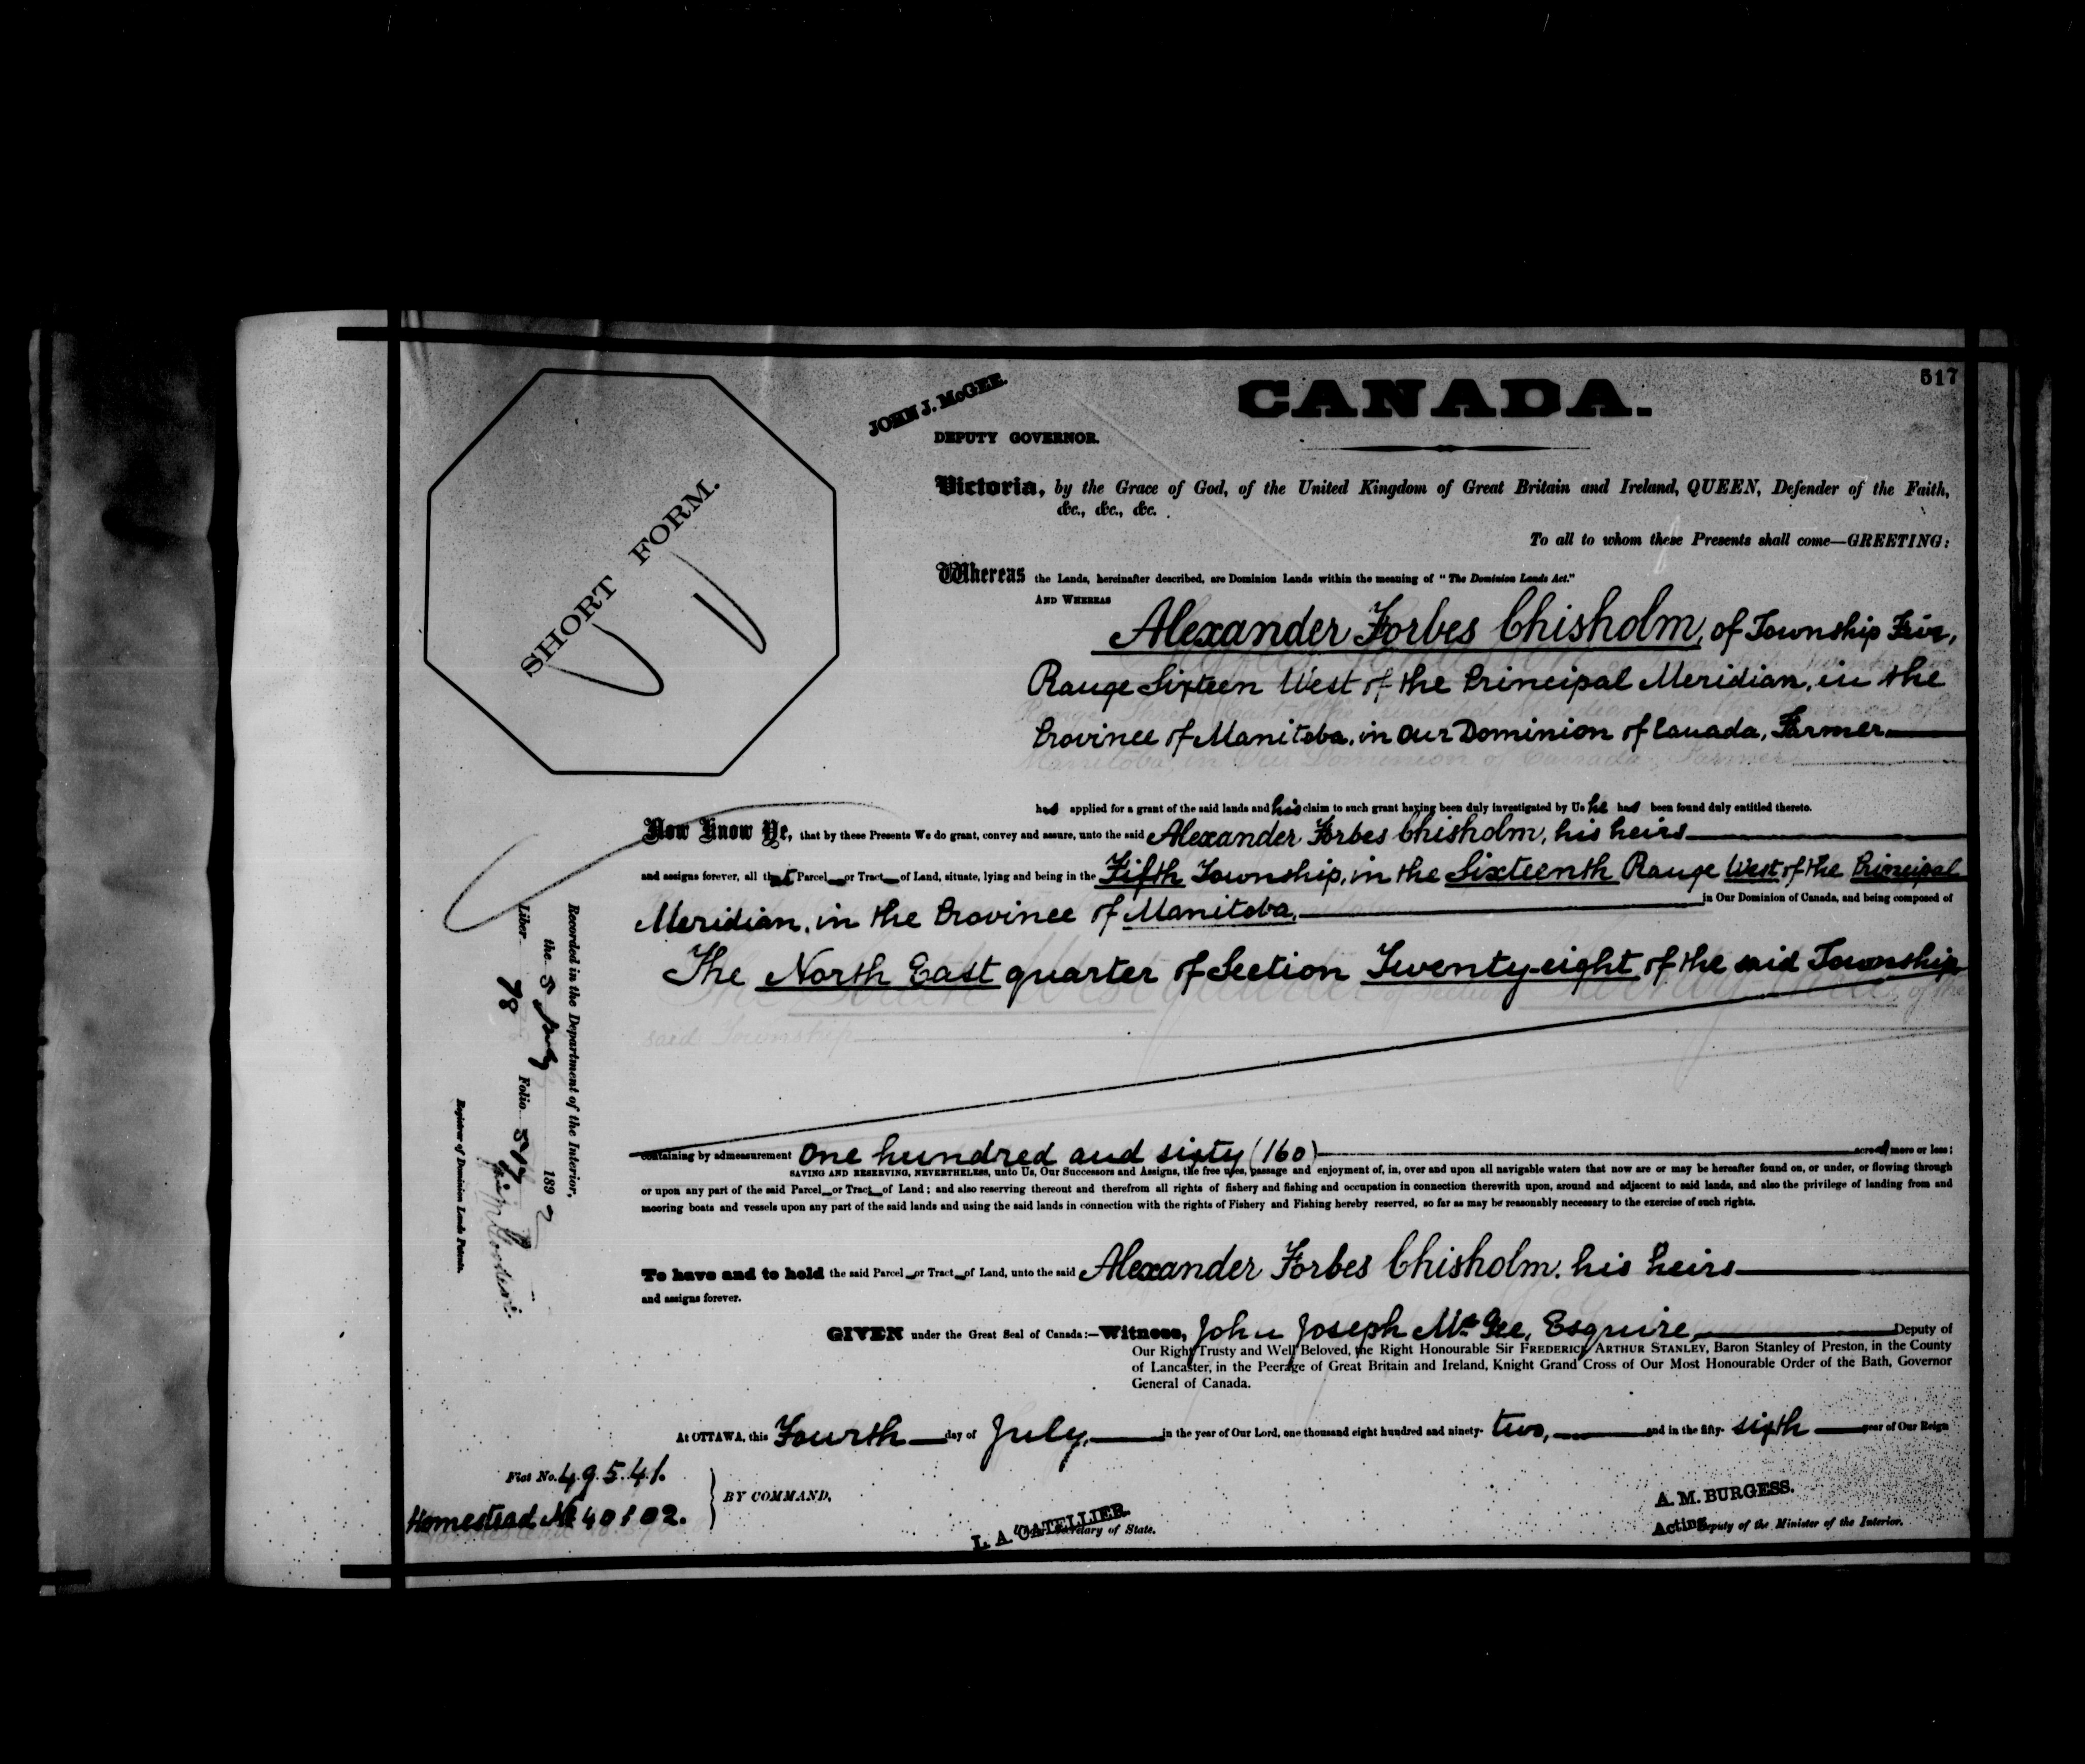 517
CANADA.
JOHN J. McGEE.
DEPUTY GOVERNOR.
SHORT FORM.
Victoria, by the Grace of God, of the United Kingdom of Great Britain and Ireland, QUEEN, Defender of the Faith,
&c., &c., &c.
To all to whom these Presents shall come—GREETING:
Whereas the Lands, hereinafter described, are Dominion Lands within the meaning of "The Dominion Lands Act."
AND WHEREAS
Alexander Forbes Chisholm, of Township Five,
Range Sixteen West of the Principal Meridian, in the
Province of Manitoba, in Our Dominion of Canada, Farmer
has applied for a grant of the said lands and his claim to such grant having been duly investigated by Us he has been found duly entitled thereto.
Now Know Ye, that by these Presents We do grant, convey and assure, unto the said Alexander Forbes Chisholm, his heirs
and assigns forever, all that Parcel or Tract of Land, situate, lying and being in the Fifth Township, in the Sixteenth Range West of the Principal
Meridian, in the Province of Manitoba, in Our Dominion of Canada, and being composed of
The North East quarter of Section Twenty-eight of the said Township
containing by admeasurement One hundred and sixty (160) acres more or less;
SAVING AND RESERVING, NEVERTHELESS, unto Us, Our Successors and Assigns, the free uses, passage and enjoyment of, in, over and upon all navigable waters that now are or may be hereafter found on, or under, or flowing through
or upon any part of the said Parcel or Tract of Land; and also reserving thereout and therefrom all rights of fishery and fishing and occupation in connection therewith upon, around and adjacent to said lands, and also the privilege of landing from and
mooring boats and vessels upon any part of the said lands and using the said lands in connection with the rights of Fishery and Fishing hereby reserved, so far as may be reasonably necessary to the exercise of such rights.
To have and to hold the said Parcel or Tract of Land, unto the said Alexander Forbes Chisholm. his heirs
and assigns forever.
GIVEN under the Great Seal of Canada:—Witness, John Joseph McGee, Esquire, Deputy of
Our Right Trusty and Well Beloved, the Right Honourable Sir FREDERICK ARTHUR STANLEY, Baron Stanley of Preston, in the County
of Lancaster, in the Peerage of Great Britain and Ireland, Knight Grand Cross of Our Most Honourable Order of the Bath, Governor
General of Canada.
At OTTAWA, this Fourth day of July, in the year of Our Lord, one thousand eight hundred and ninety-two, and in the fifty-sixth year of Our Reign
Fiat No. 49541.
Homestead No 40102.
BY COMMAND,
L. A. CATELLIER.
Secretary of State.
A. M. BURGESS.
Acting Deputy of the Minister of the Interior.
Recorded in the Department of the Interior,
the 5 July 1892
Liber 78 Folio 517
Registrar of Dominion Lands Patents.